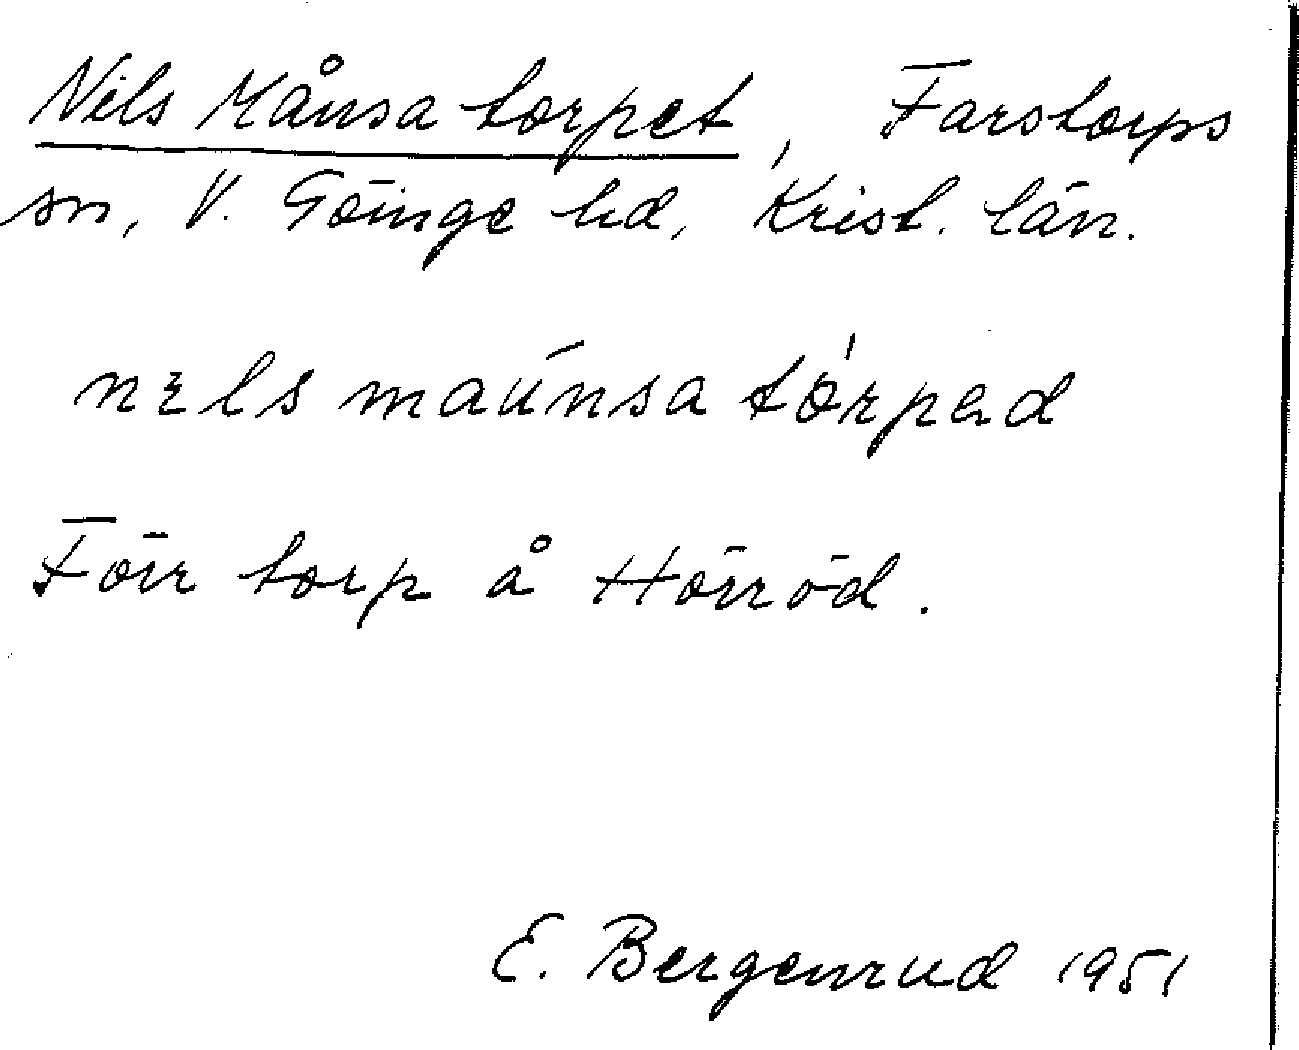 Nils Månsa torpet, Farstorps
sn, V. Göinge hd, Krist. län.
nɛls maúnsa tórpəd
Förr torp å Hörröd.
E. Bergenrud 1951